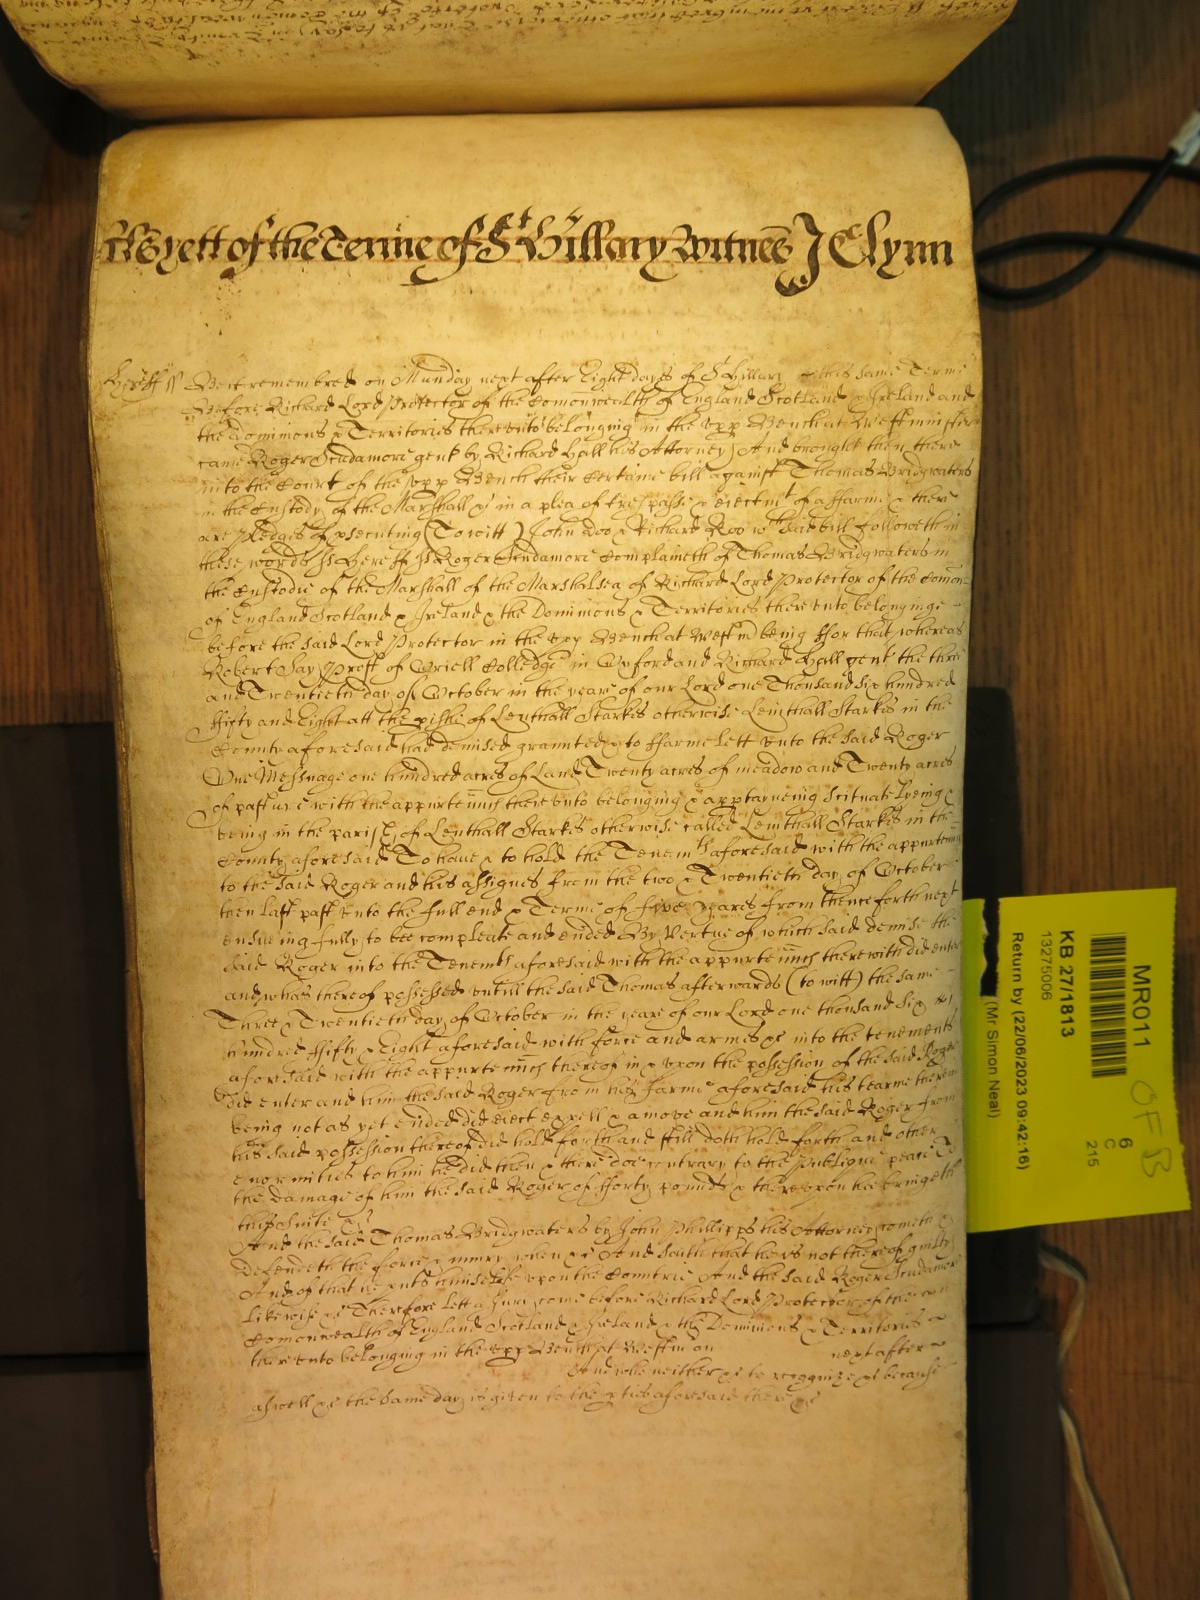 As yett of the Terme of St Hillary Witnes J Glynn
Hereff ss Bee it remembred on Munday next after Eight dayes of St Hillary this same Terme
Before Richard Lord Protector of the Comonwealth of England Scotland & Ireland and
the dominions & Territories thereunto belonging in the upp Bench at Westminster
came Roger Scudamore gent by Richard Hall his Attorney And brought then there
into the Court of the upp Bench their Certaine bill against Thomas Bridgwaters
in the Custody of the Marshall &c in a plea of trespasse & eiectmt of a ffarme & there
are pledges of psecuting (To witt) John Doo & Richard Roo wch said bill followeth in
these words ss Hereff ss Roger Scudamore Complaineth of Thomas Bridgwaters in
the Custodie of the Marshall of the Marshalsea of Richard Lord Protector of the Comon
of England Scotland & Ireland & the Dominions & Territories thereunto belonginge
before the said Lord Protector in the upp Bench at Westm being ffor that whereas
Robert Say Provost of Oriell Colledge in Oxford and Richard Hall gent the three
and Twentieth day of October in the yeare of our Lord one Thousand six hundred
ffifty and Eight att the pishe of Lenthall Starkes otherwise Leinthall Starkes in the
County aforesaid had demised graunted & to ffarme lett unto the said Roger
One Messuage one hundred acres of Land Twenty acres of meadow and Twenty acres
of pasture with the appurtenncs thereunto belonging & apptayneing scituate lyeing &
being in the parish of Lenthall Starkes otherwise called Leinthall Starkes in the
County aforesaid To have & to hold the Tenemts aforesaid with the appurtenncs
to the said Roger and his assignes from the two & Twentieth day of October
then last past unto the full end & Terme of five yeares from thenceforth next
ensueing fully to bee compleate and ended By Vertue of which said demise the
said Roger into the Tenemts aforesaid with the appurtenncs therewith did enter
and was thereof possessed untill the said Thomas afterwards (to witt) the same
Three & Twentieth day of October in the yeare of our Lord one thousand six
hundred ffifty & Eight aforesaid with force and armes &c into the tenements
aforesaid with the appurtenncs thereof in & upon the possession of the said Roger
did enter and him the said Roger from his farme aforesaid his tearme therein
being not as yet ended did eiect expell & amove and him the said Roger from
his said possession thereof did hold forth and still doth hold forth and other
enormities to him he did then & there doe contrary to the Publique peace To
the damage of him the said Roger of fforty pounds & thereupon hee bringeth
this suite &c
And the said Thomas Bridgwaters by John Phillipps his Attorney cometh &
defendeth the force & iniury when &c And saith that he is not thereof guilty
And of that he puts himselfe upon the Countrie And the said Roger Scudamore
likewise &c Therefore lett a Jury come before Richard Lord Protector of the
Comonwealth of England Scotland & Ireland & the Dominions & Territories
thereunto belonging in the upp Bench at Westm on next after
And who neither &c to recognize &c because
aswell &c the same day is given to the pties aforesaid there &c
MR011
KB 27/1813
13275006
Return by (22/06/2023 09:42:16)
(Mr Simon Neal)
6
C
215
OF B